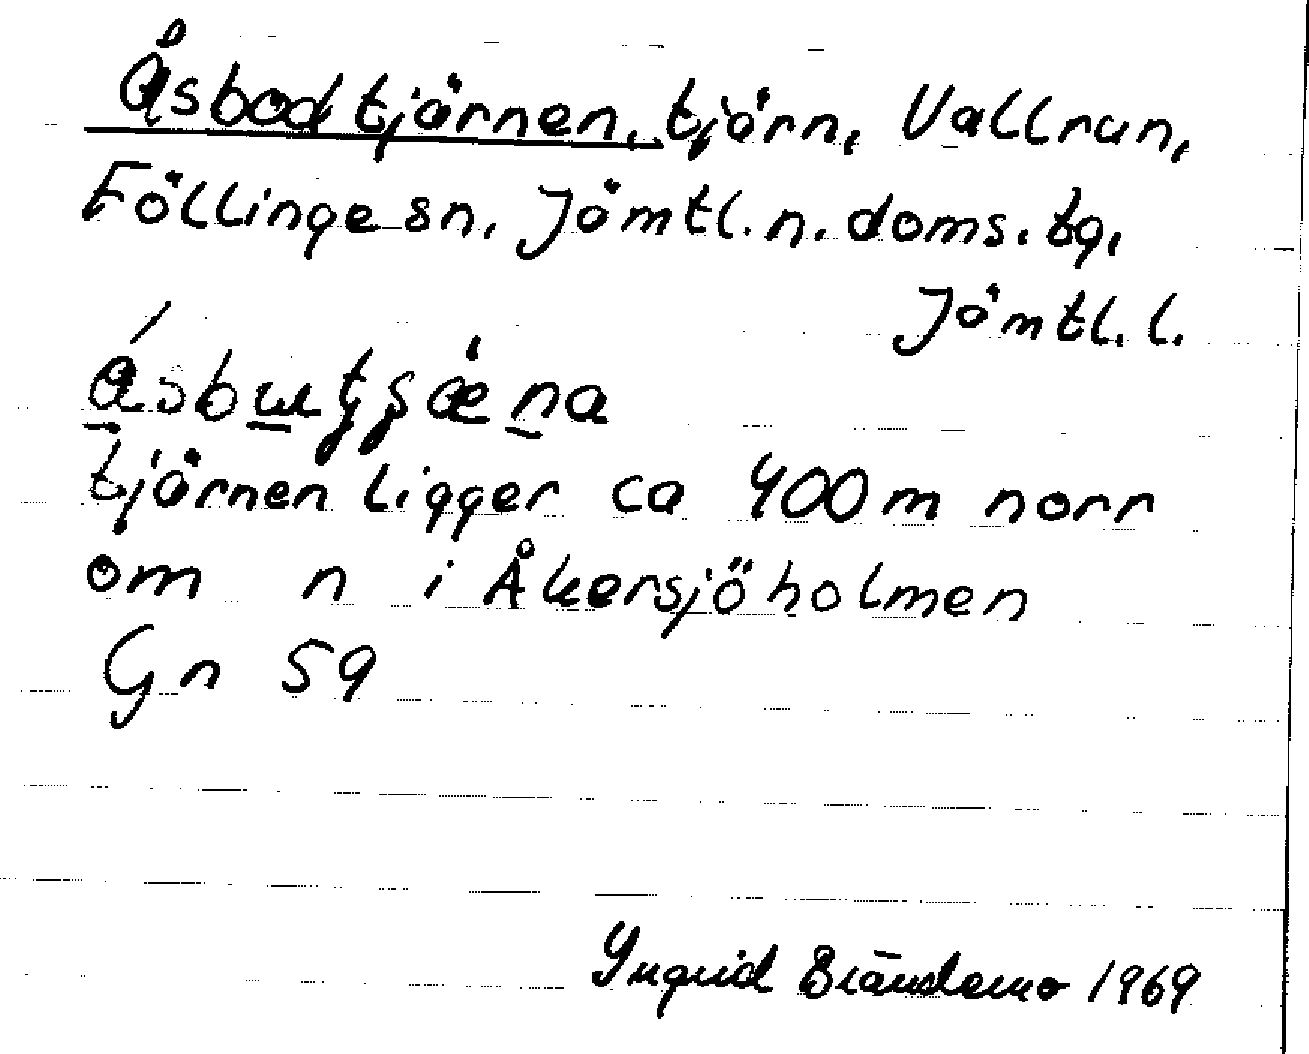 Åsbodtjärnen, tjärn, Vallrun,
Föllinge sn, Jämtl. n. doms. tg,
Jämtl. l.
tjärnen ligger ca 400 m norr
om n i Åkersjöholmen
Gn 59
Ingrid Brändemo 1969